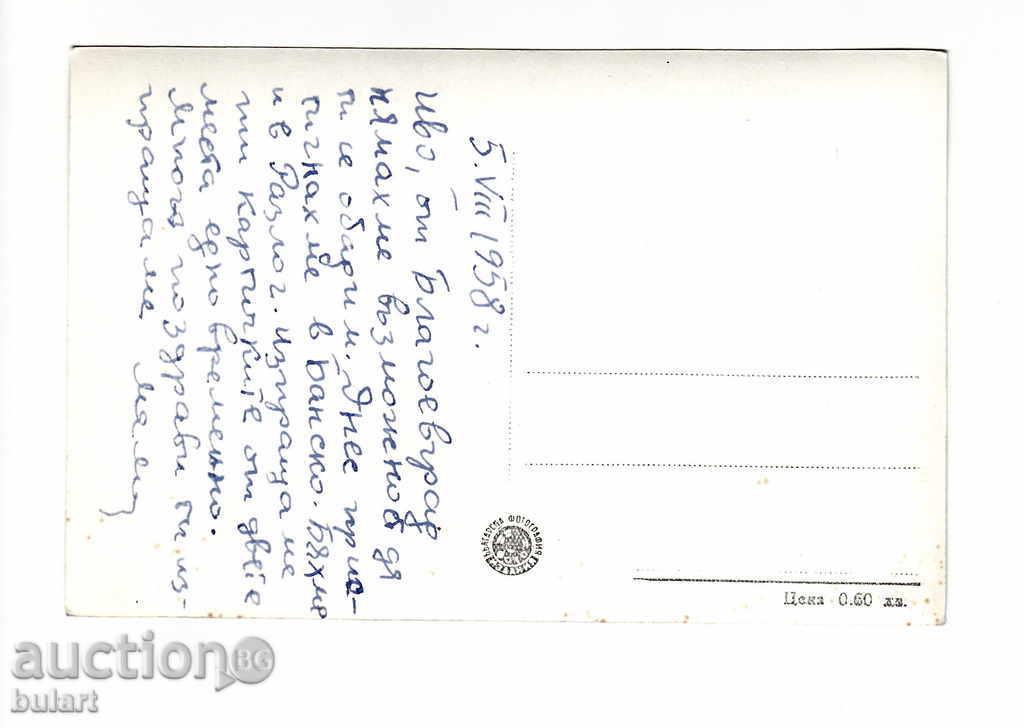 5. VIII 1958 г.
Иво, от Благоевград
нямахме възможност да
ти се обадим. Днес прис-
тигнахме в Банско. Бяхме
и в Разлог. Изпращаме
ти картичките от двете
места едновременно.
Много поздрави ти из-
пращаме мама
БЪЛГАРСКА ФОТОГРАФИЯ
Цена 0.60 лв.
auction BG
bulart